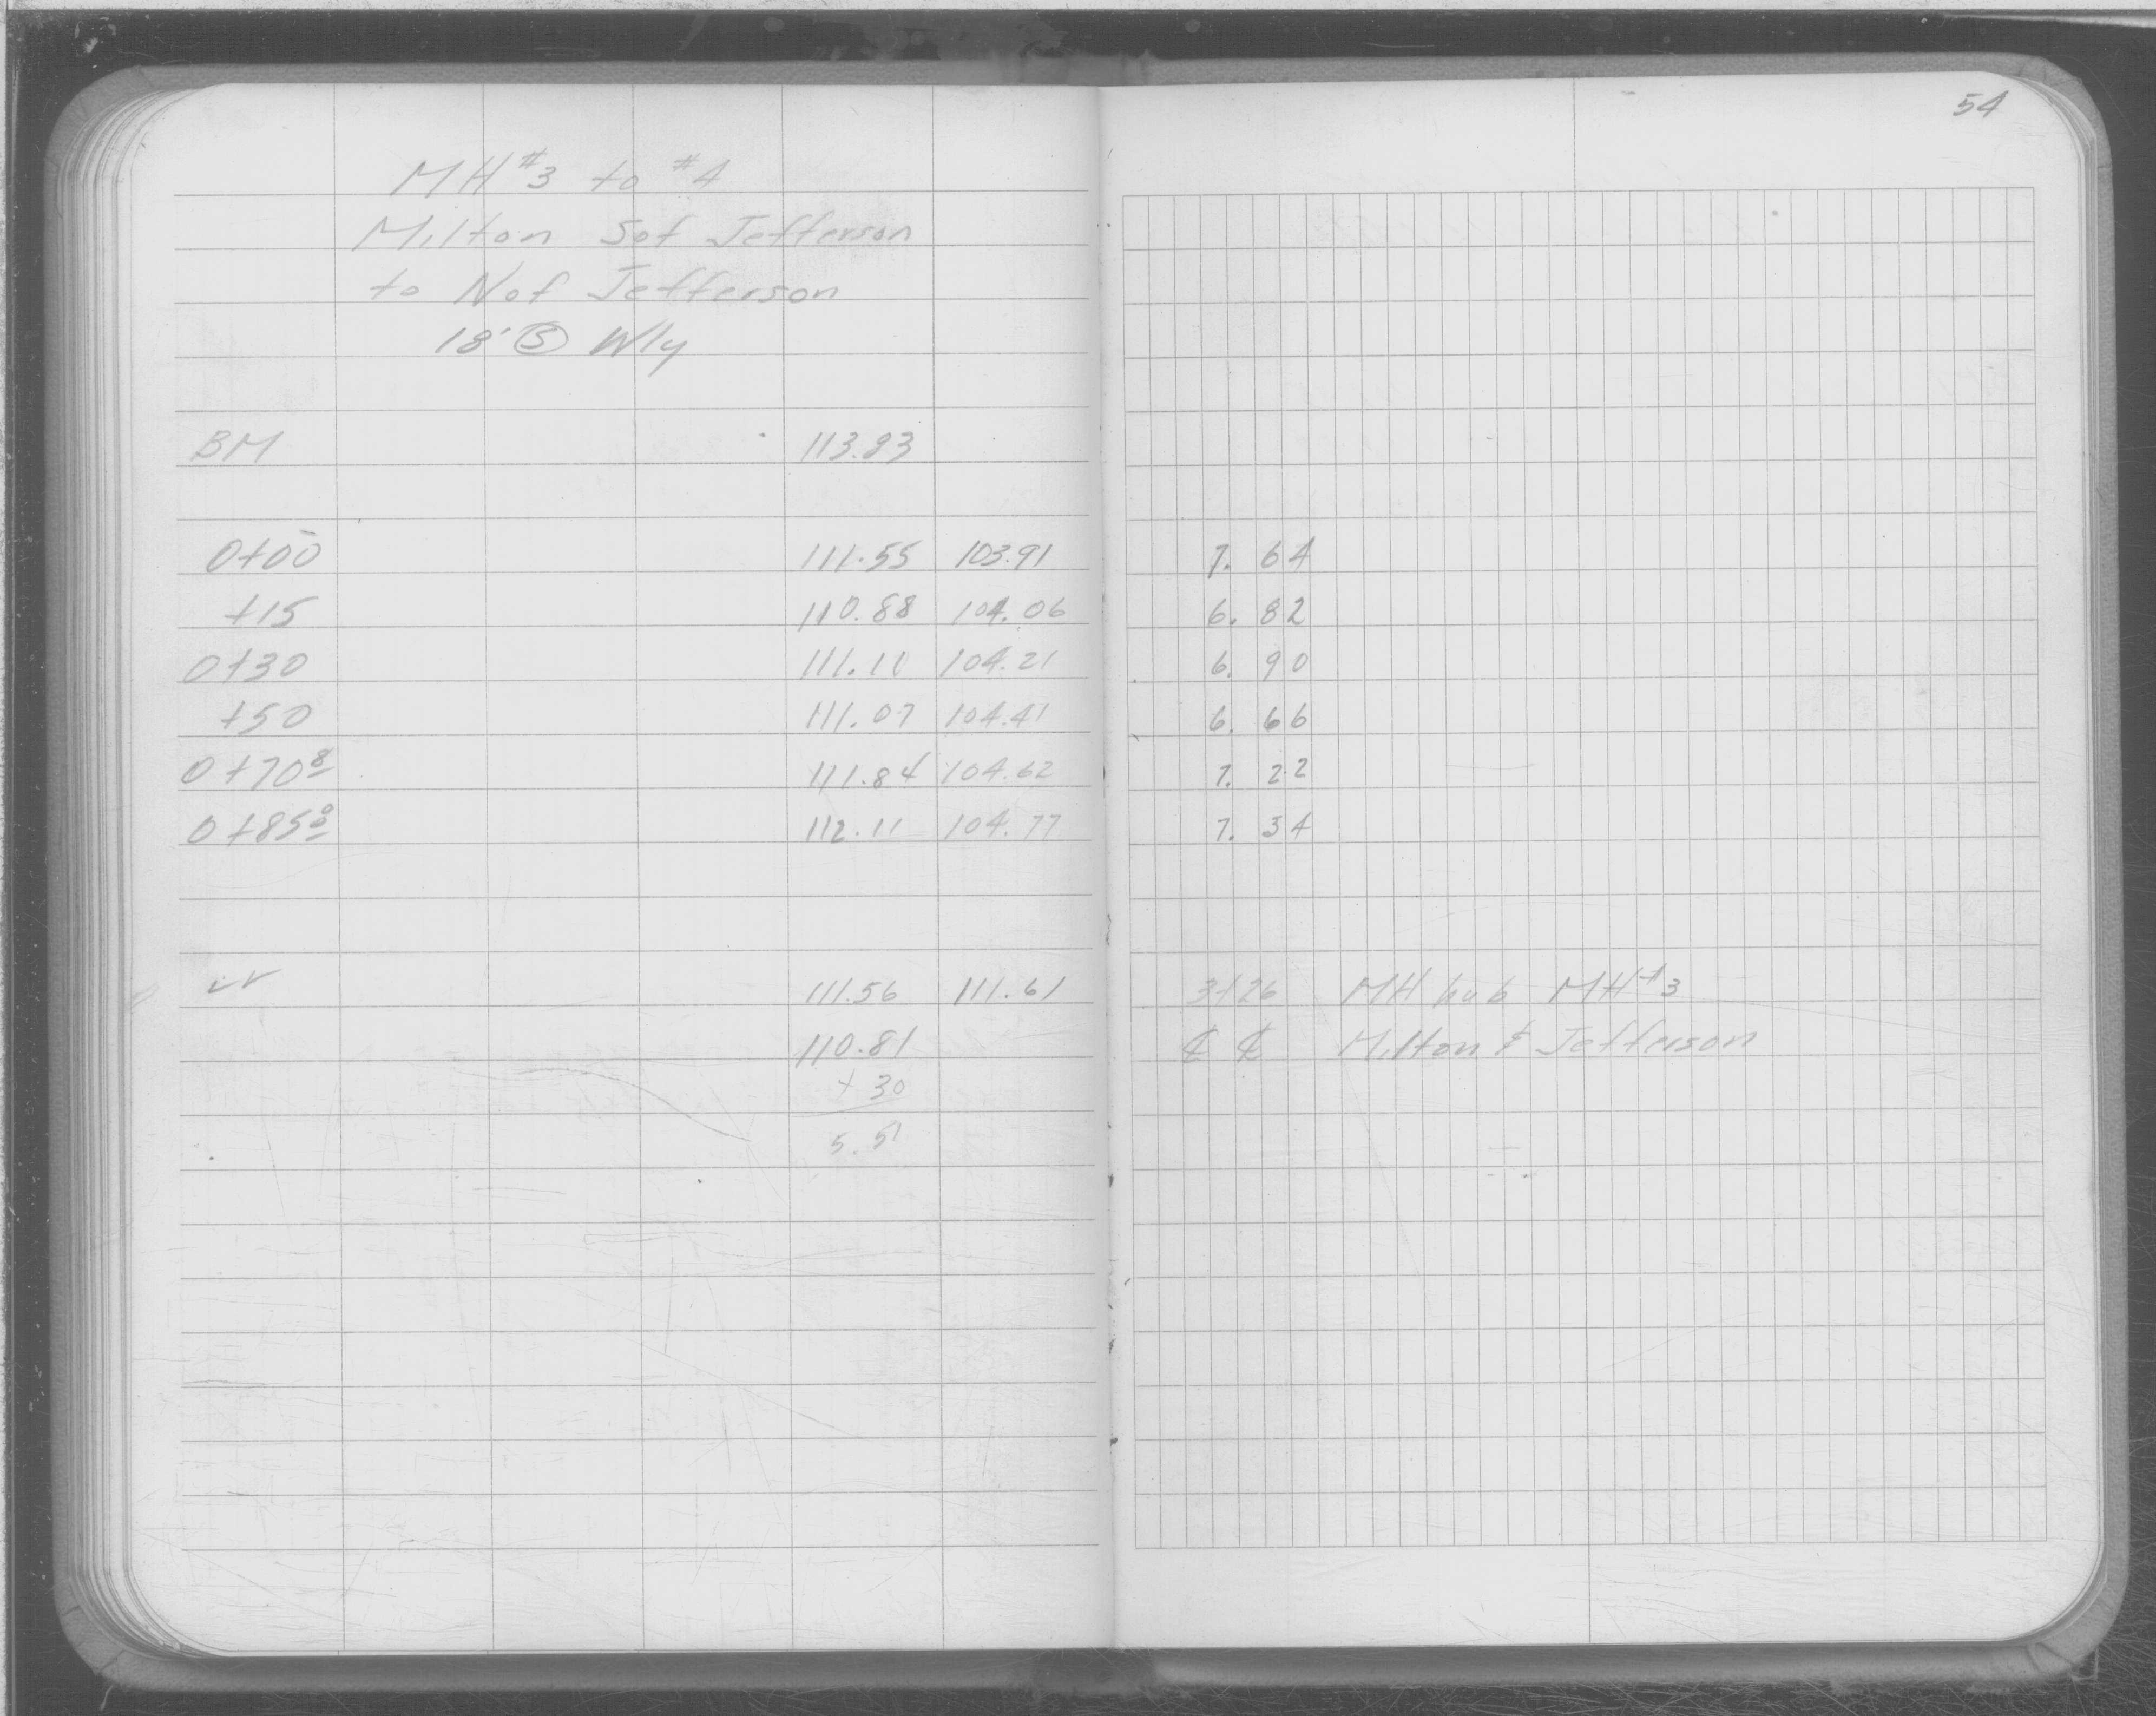 54
MH #3 to #4
Milton S of Jefferson
to N of Jefferson
18' Ⓢ Wly
BM 113.83
0+00 111.55 103.91 7.64
+15 110.88 104.06 6.82
0+30 111.11 104.21 6.90
+50 111.07 104.41 6.66
0+70 8 111.84 104.62 7.22
0+85 8 112.11 104.77 7.34
111.56 111.61 3+26 MH hub MH #3
110.81 ₵ ₵ Milton & Jefferson
+ 30
5.51